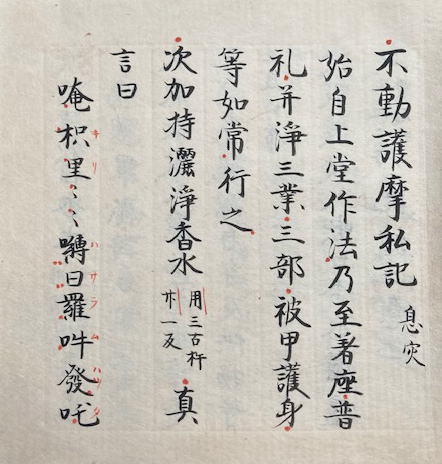 不動護摩私記 息灾
始自上堂作法乃至着座普
礼并淨三業三部被甲護身
等如常行之
次加持灑淨香水 用三古杵 廿一反 真
言曰
唵枳里〻〻嚩日羅吽發吒
キリ
ハサラム